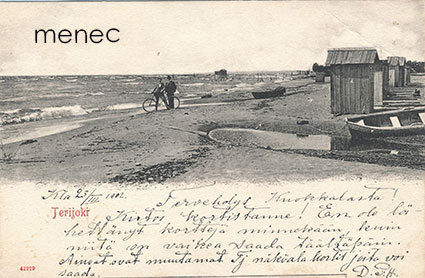 menec
Kla 23/III 1902.
Tervehdys Kuokkalasta!
Terijoki
Kiitos kortistanne! En ole lä-
hettänyt kortteja minnekään, kuin
niitä on vaikea saada täältäpäin.
Ainoat ovat muutamat Tj näköala kortit joita voi
41229
saada.